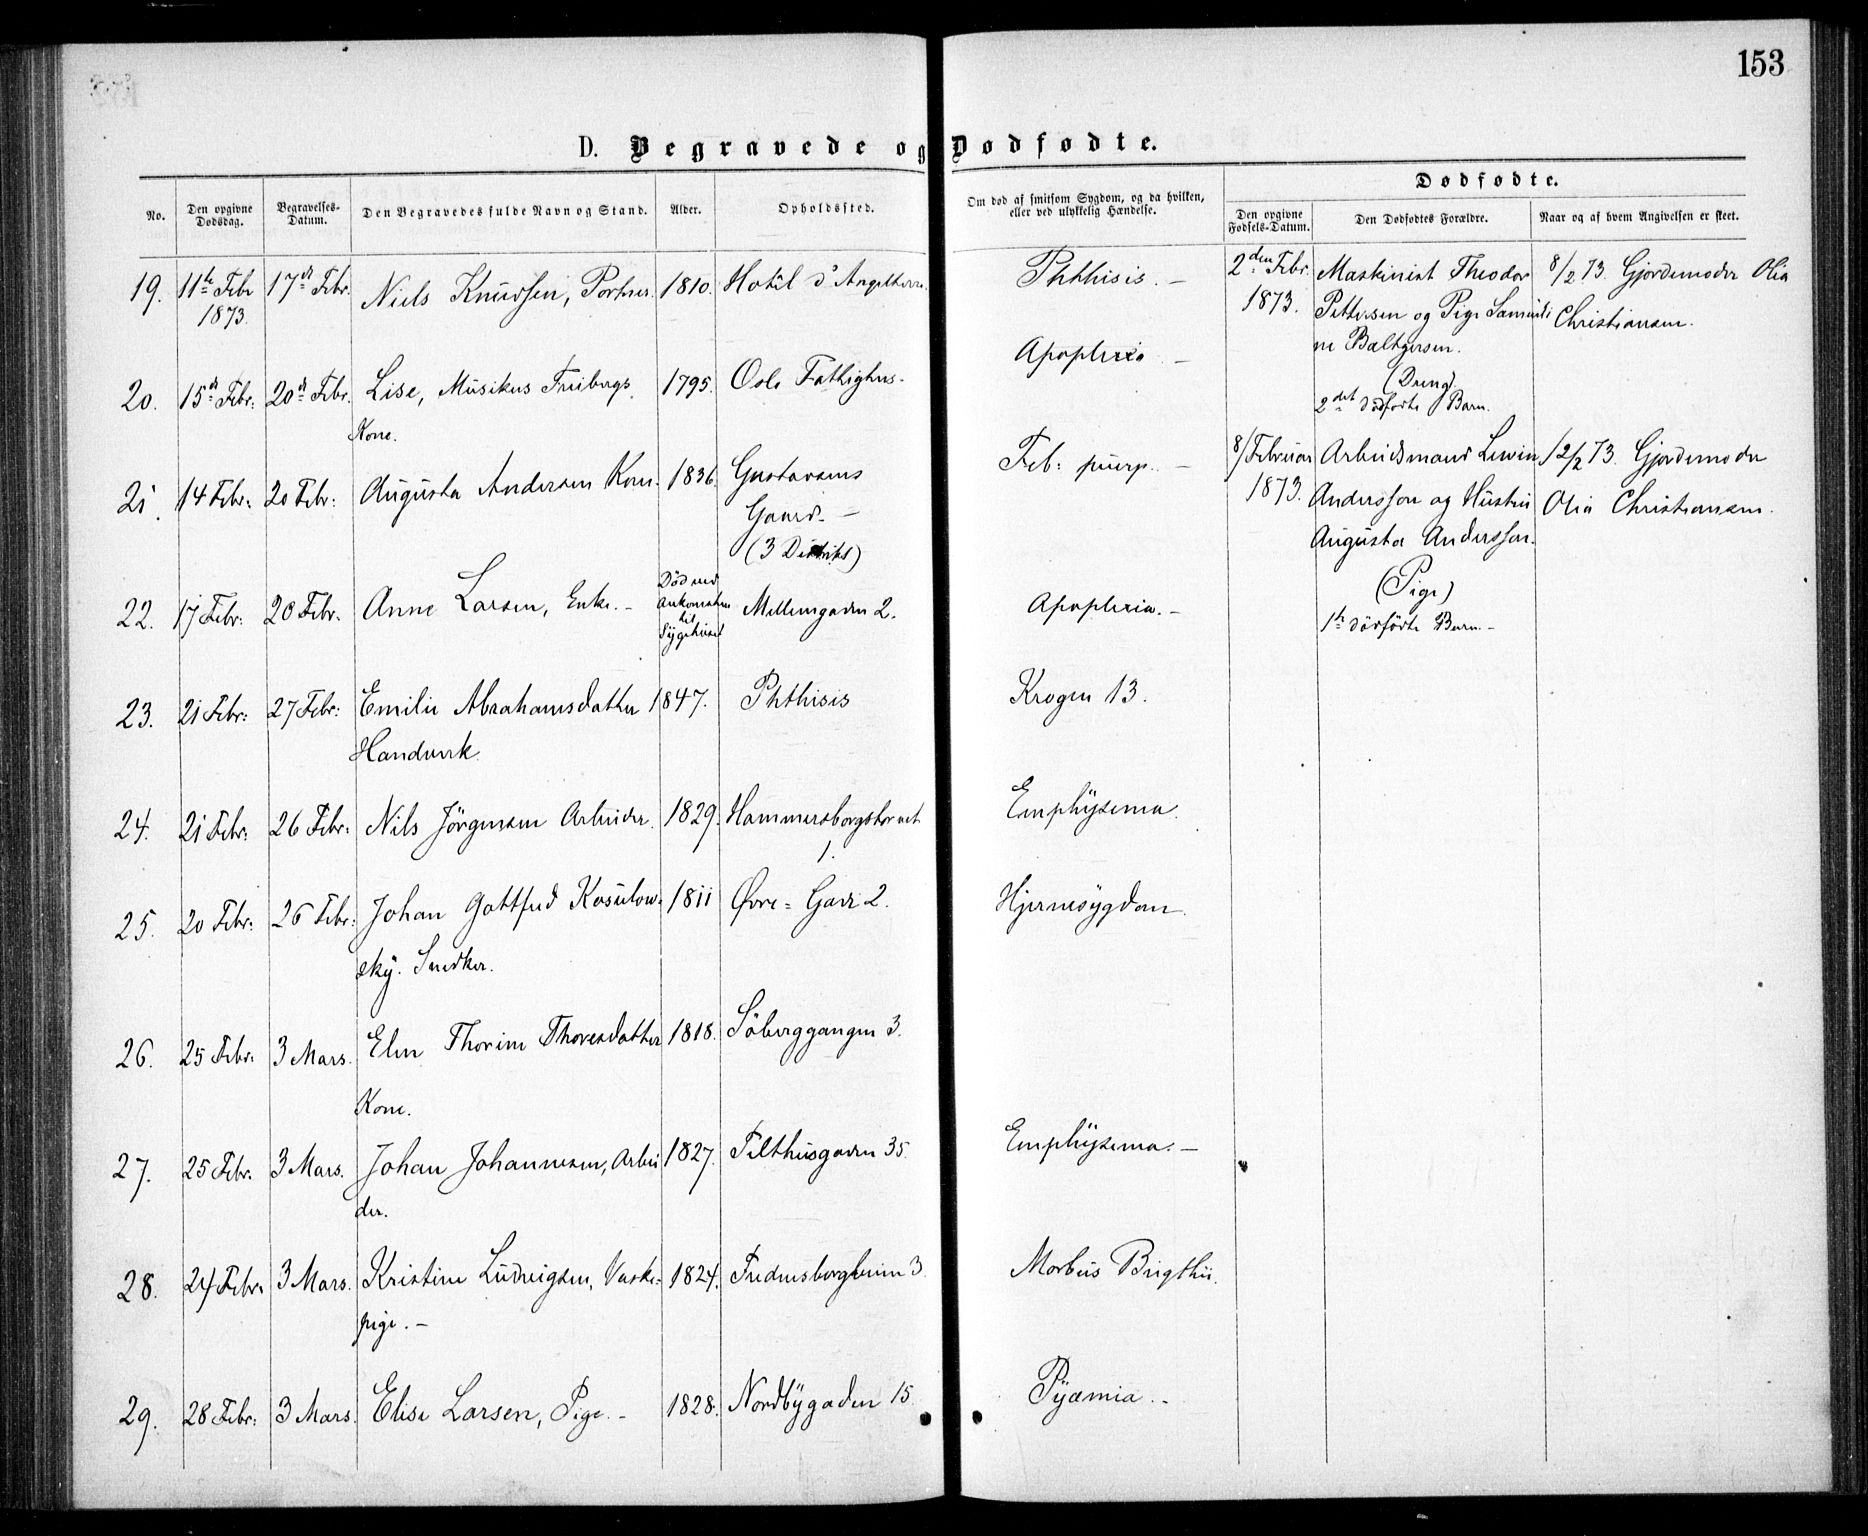 153
D. Begravede og Dødfødte.
No. Den opgivne Dødsdag. Begravelses-Datum. Den Begravedes fulde Navn og Stand. Alder. Opholdssted. Om død af smitsom Sygdom, og da hvilken, eller ved ulykkelig Hændelse.
Dødfødte.
Den opgivne Fødsels-Datum. Den Dødfødtes Forældre. Naar og af hvem Angivelsen er skeet.
19. 11te Febr 17de Febr. Niels Knudsen, Portner 1810. Hotël d'Angelterre. Phthisis. -
1873.
20. 15de Febr: 20de Febr. Lise, Musikus Freibergs 1795. Oslo Fattighus. Apoplexia -
Kone.
21. 14 Febr: 20 Febr: Augusta Andersen Kone. 1836. Gustavsens Feb: puerp. -
Gaard. -
(3 Distrikt)
22. 17 Febr: 20 Febr. Anne Larsen, Enke. - Død ved Ankomsten til Sygehuset Mellemgaden 2. Apoplexia. -
23. 21 Febr: 27 Febr: Emilie Abrahamsdatter 1847. Phthisis Krogen 13.
Handverk.
24. 21 Febr: 26 Febr: Nils Jörgensen Arbeider. 1829. Hammersborgtorvet Emphysema.
1.
25. 20 Febr: 26 Febr: Johan Gottfred Kosulow- 1811 Øvre-Gade 2. Hjernesygdom.
sky. Snedker.
26. 25 Febr: 3 Mars. Elen Thorine Thoresdatter 1818. Söberggangen 3.
Kone.
27. 25 Febr. 3 Mars. Johan Johannesen, Arbei 1827. Filthusgaden 35. Emphysema. -
der.
28. 24 Febr. 3 Mars. Kristine Ludvigsen, Vaske- 1824. Fredensborgveien 3. Morbus Brigthii.
pige. -
29. 28 Febr: 3 Mars. Elise Larsen, Pige. - 1828. Nordbygaden 15. Pyæmia. -
2den Febr. Maskinist Theodor 8/2 73. Gjordemoder Olia
1873. Pettersen og Pige Samueli Christiansen.
ne Baltzersen.
(Dreng)
2det dödfödte Barn.
8/Februar Arbeidsmand Lewin 12/2 73. Gjordemoder
1873. Andersson og Hustru Olia Christiansen.
Augusta Andersson.
(Pige)
1te dödfödte Barn. -